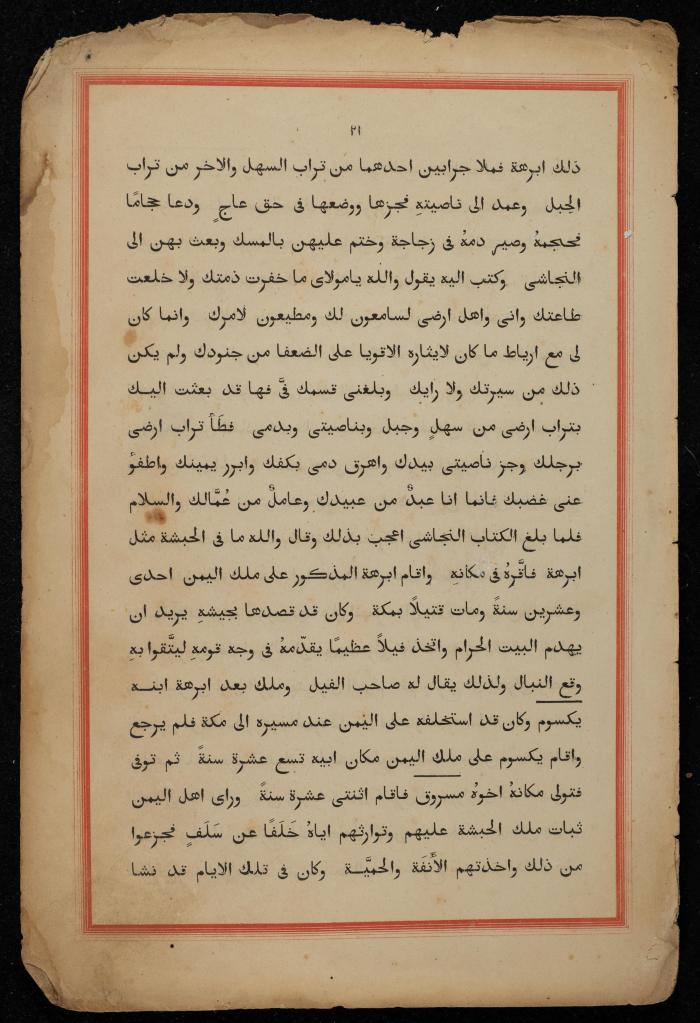 ٢١
ذلك ابرهة فملا جرابين احدهما من تراب السهل والاخر من تراب
الجبل وعمد الى ناصيتهِ فجزها ووضعها فى حق عاجٍ ودعا حجامًا
فحجمهُ وصير دمهُ فى زجاجة وختم عليهن بالمسك وبعث بهن الى
النجاشى وكتب اليه يقول والله يامولاى ما خفرت ذمتك ولا خلعت
طاعتك وانى واهل ارضى لسامعون لك ومطيعون لامرك وانما كان
لى مع ارياط ما كان لايثاره الاقويا على الضعفا من جنودك ولم يكن
ذلك من سيرتك ولا رايك وبلغنى قسمك فىَّ فها قد بعثت اليك
بتراب ارضى من سهلٍ وجبل وبناصيتى وبدمى فطَأ تراب ارضى
برجلك وجز ناصيتى بيدك واهرق دمى بكفك وابرر يمينك واطفوْ
عنى غضبك فانما انا عبدٌ من عبيدك وعاملٌ من عُمَّالك والسلام
فلما بلغ الكتاب النجاشى اعجب بذلك وقال والله ما فى الحبشة مثل
ابرهة فاقَّرهُ فى مكانهِ واقام ابرهة المذكور على ملك اليمن احدى
وعشرين سنةً ومات قتيلًا بمكة وكان قد قصدها بجيشهِ يريد ان
يهدم البيت الحرام واتخذ فيلاً عظيمًا يقدّمهُ فى وجه قومهِ ليتَّقوا بهِ
وقع النبال ولذلك يقال له صاحب الفيل وملك بعد ابرهة ابنه
يكسوم وكان قد استخلفه على اليمن عند مسيره الى مكة فلم يرجع
واقام يكسوم على ملك اليمن مكان ابيه تسع عشرة سنةً ثم توفى
فتولى مكانهُ اخوهُ مسروق فاقام اثنتى عشرة سنةً وراى اهل اليمن
ثبات ملك الحبشة عليهم وتوارثهم اياهُ خَلَفًا عن سَلَفٍ فجزعوا
من ذلك واخذتهم الأَنَفَة والحميَّة وكان فى تلك الايام قد نشا